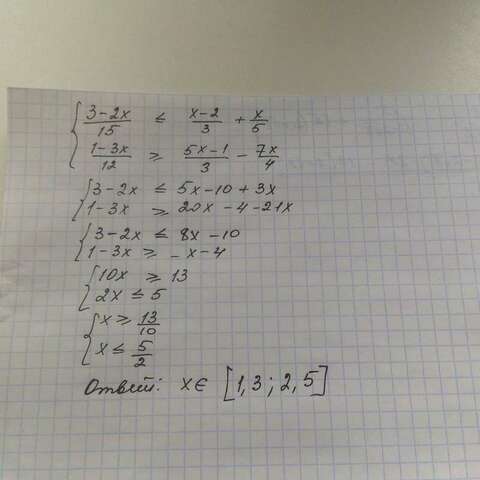 { (3-2x)/15 ≤ (x-2)/3 + x/5
(1-3x)/12 ≥ (5x-1)/3 - 7x/4
{ 3-2x ≤ 5x-10+3x
1-3x ≥ 20x-4-21x
{ 3-2x ≤ 8x-10
1-3x ≥ -x-4
{ 10x ≥ 13
2x ≤ 5
{ x ≥ 13/10
x ≤ 5/2
Ответ: x∈ [1,3 ; 2,5]